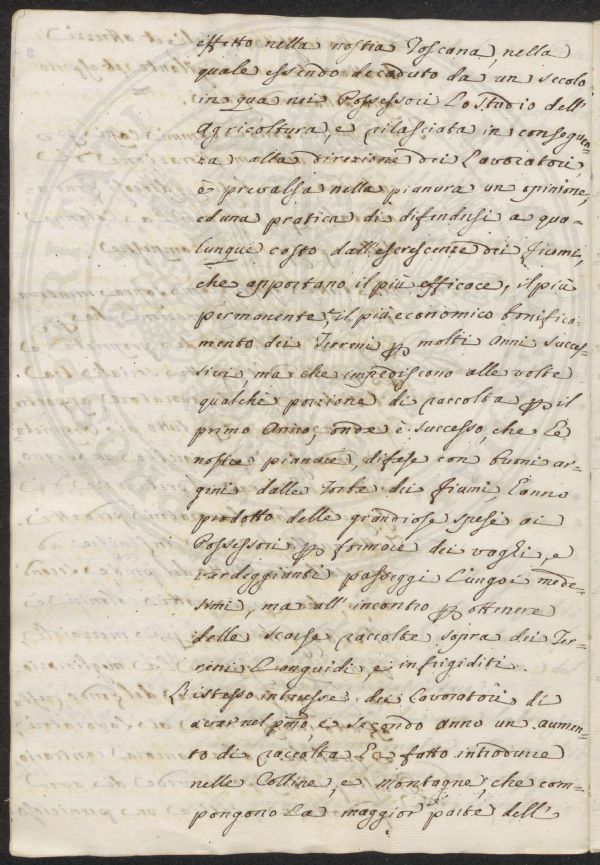 effetto nella nostra Toscana, nella
quale essendo decaduto da un secolo
in qua nei Possessori Lo studio dell'
Agricoltura, e rilasciata in conseguen-
za alla direzione dei Lavoratori,
è prevalsa nella pianura un opinione,
ed una pratica di difendersi a qua-
lunque costo dall'escrescenze dei fiumi,
che apportano il più efficace, il più
permanente, e il più economico bonifica-
mento dei Terreni per molti Anni succes-
sivi, ma che impediscono alle volte
qualche porzione di raccolta per il
primo Anno, onde è successo, che Le
nostre pianure, difese con buoni ar-
gini dalle Torbe dei fiumi, anno
prodotto delle grandiose spese ai
Possessori per formare dei vaghi, e
verdeggianti passeggi Lungo i mede-
simi, ma all'incontro per ottenere
delle scarse raccolte sopra dei Ter-
reni Languidi, e infrigiditi.
L'istesso interesse dei Lavoratori di
aver nel pmo, e secondo anno un aumen-
to di raccolta La fatto introdurre
nelle Colline, e montagne, che com-
pongono La maggior parte dell'